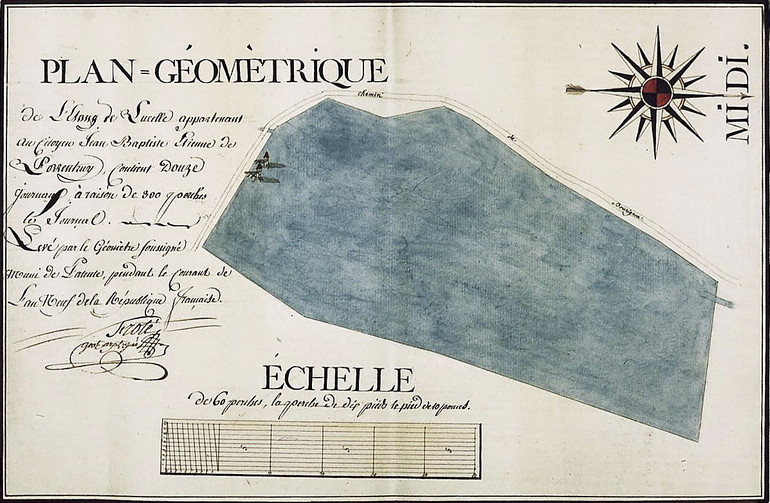 PLAN=GÉOMÈTRIQUE
de L'Etang de Lucelle appartenant
au Citoyen Jean Baptiste Etienne de
Porrentruy, Contient Douze
Journaux à raison de 300 perches
le Journal.
Levé par le Géomètre soussigné
Muni de Patente, pendant le courant de
L'an Neuf de la République Française.
chemin
de
MI,DI.
ÉCHELLE
de 60 perches, la perche de dix pieds le pied de 10 pouces.